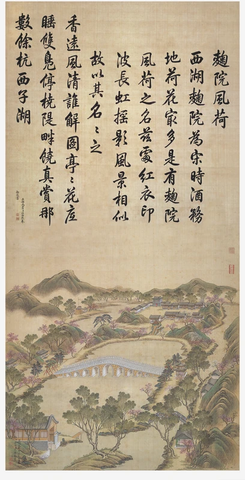 麯院風荷
西湖麯院為宋時酒務
地荷花冣多是有麯院
風荷之名茲處紅衣印
波長虹搖影風景相似
故以其名々之
香遠風清誰解圖亭々花底
睡雙鳧停橈堤畔饒真賞那
數餘杭西子湖